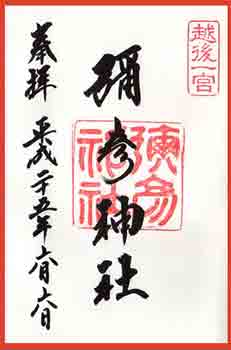 越後一宮
彌彦神社
彌彦神社
奉拝
平成二十五年六月六日